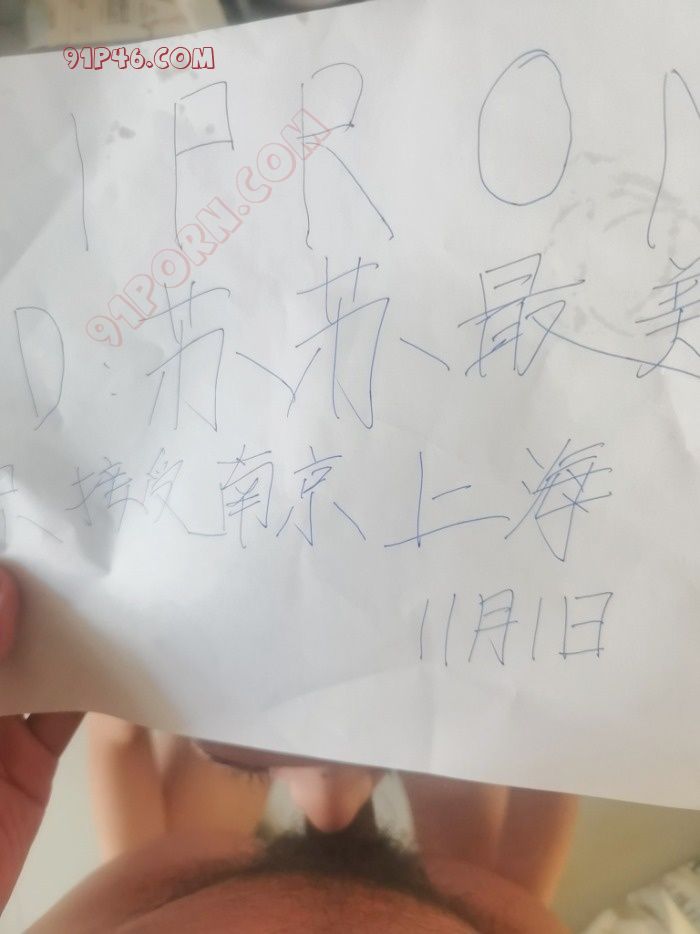 91P46.COM
1 P R O
91PORN.COM
D:苏苏最美
接受南京上海
11月1日